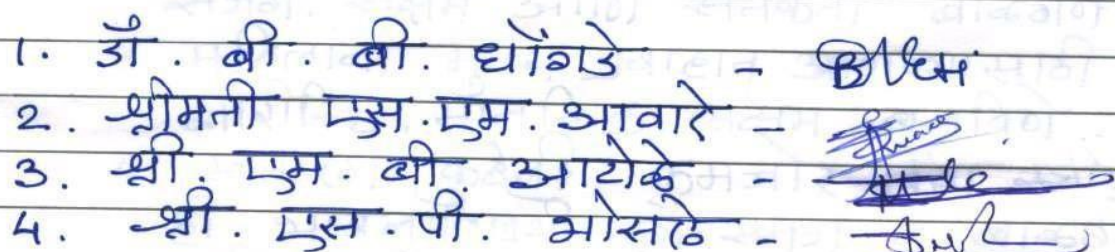 1. डॉ. बी. बी. घोंगडे -
2. श्रीमती एस. एम. आवारे -
3. श्री. एम. बी. आटोळे -
4. श्री. एस. पी. भोसले -